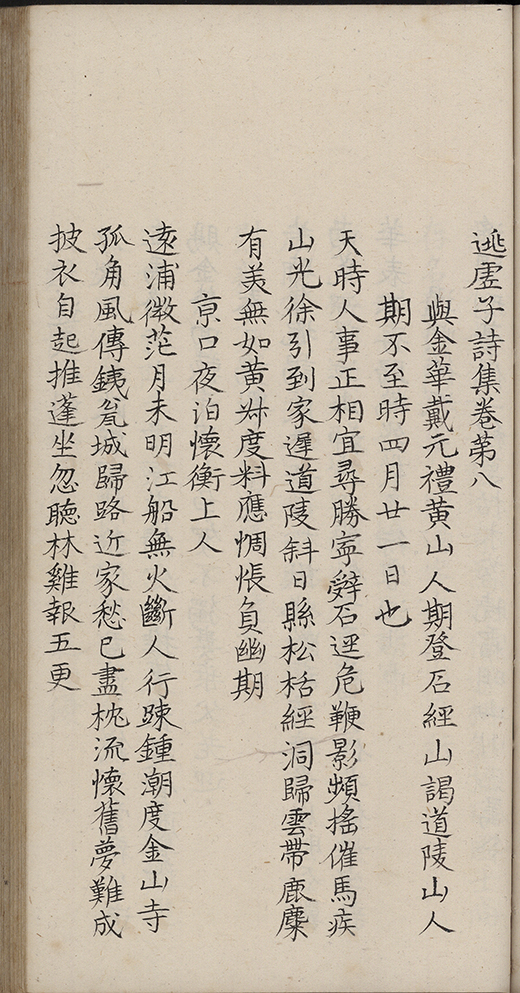 逃虛子詩集卷第八
與金華戴元禮黃山人期登石經山謁道陵山人
期不至時四月廿一日也
天時人事正相宜尋勝寧辭石逕危鞭影頻搖催馬疾
山光徐引到家遲道陵斜日縣松栝經洞歸雲帶鹿麋
有美無如黃叔度料應惆悵負幽期
京口夜泊懷衡上人
遠浦微茫月未明江船無火斷人行踈鍾潮度金山寺
孤角風傳銕瓮城歸路近家愁已盡枕流懷舊夢難成
披衣自起推蓬坐忽聽林雞報五更